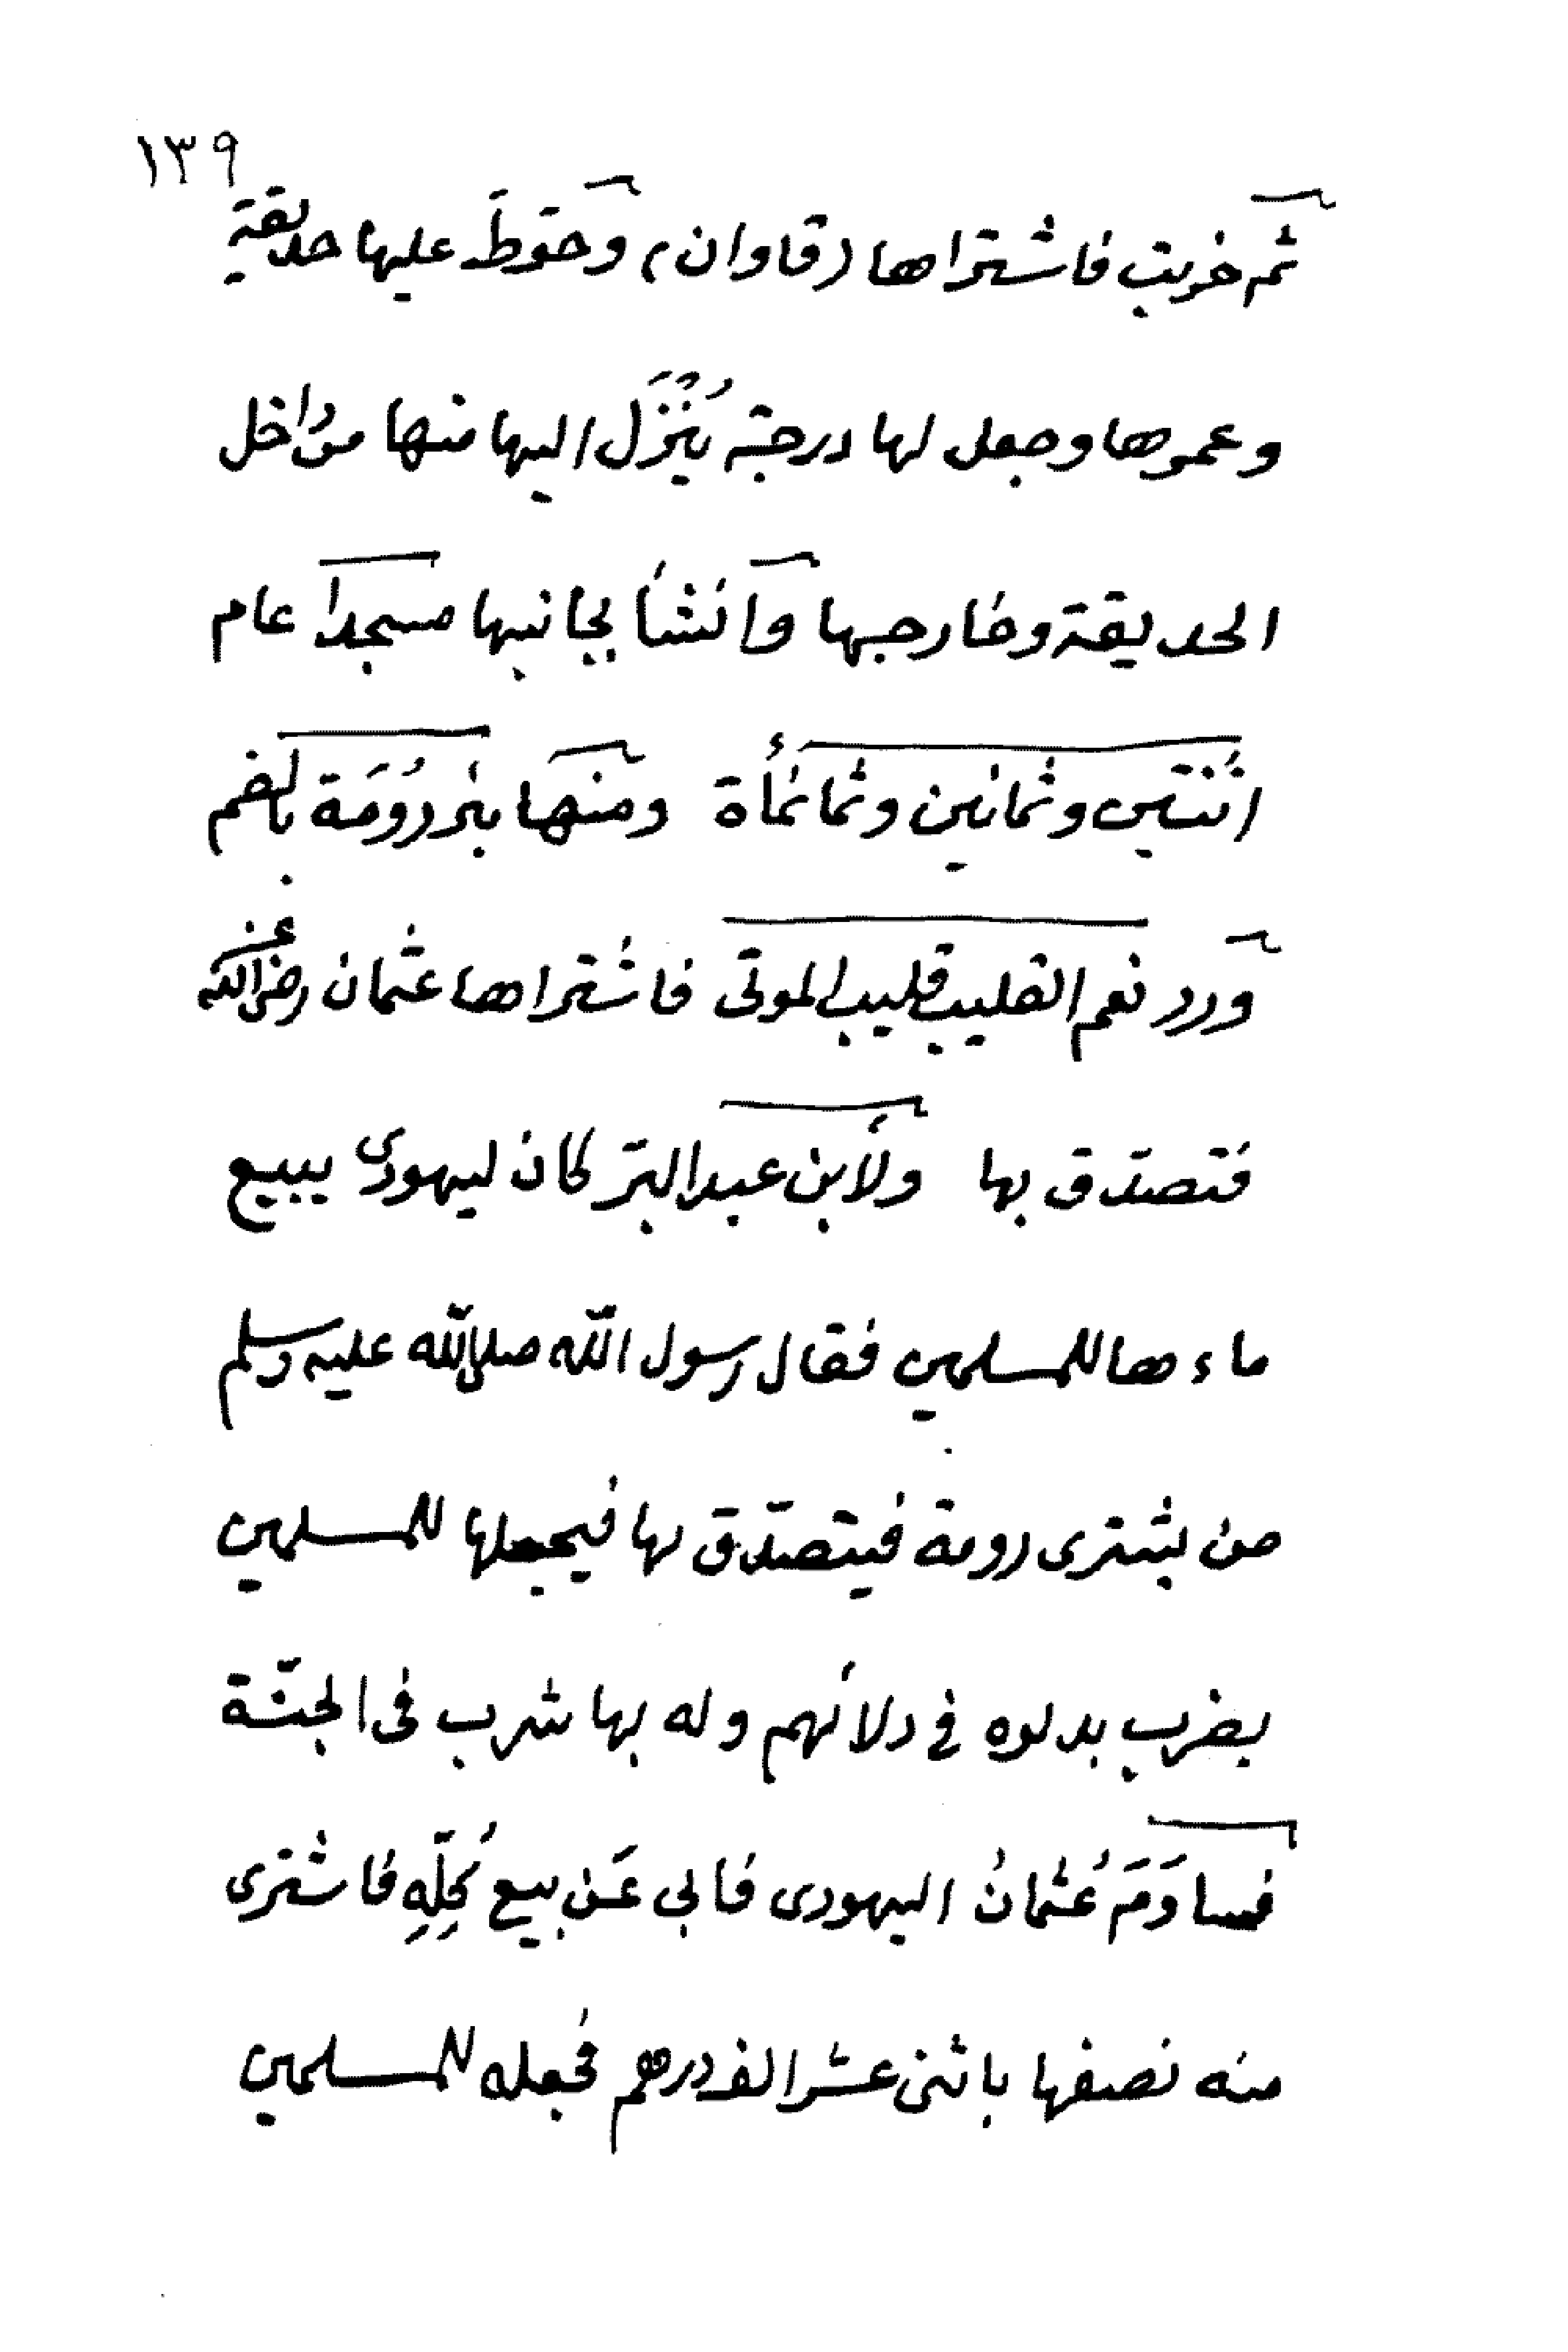 ١٣٩
ثم خربت فاشتراها (قاوان) وحَوّطَ عليها حديقة
وعمرها وجعل لها درجة يُنْزَل اليها منها من داخل
الحديقة وخارجها وانشأ بجانبها مسجدا عام
اثنتين وثمانين وثمانمأة ومنها بئر رُومَة بالضم
وورد نعم القليب قليب الموتى فاشتراها عثمان رضى الله عنه
فتصدّق بها ولأبن عبد البرّ كان ليهودى يبيع
ماءها للمسلمين فقال رسول اللّه صلى اللّه عليه وسلم
من يشترى رومة فيتصدّق بها فيجعلها للمسلمين
يضرب بدلوه في دلائهم وله بها شرب فى الجنّة
فساوَمَ عُثمانُ اليهودى فابى عَن بيع كُلِّهِ فاشترى
منه نصفها باثنى عشر الف درهم فجعله للمسلمين